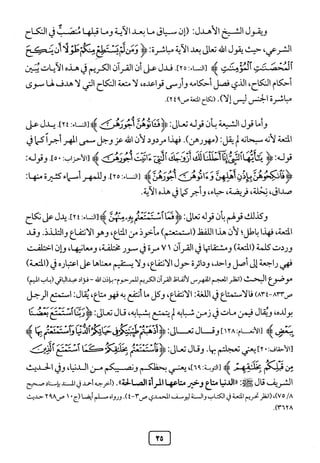 ويقول الشيخ الأهدل: (إن سياق ما بعد الآية وما قبلها مُنصَبٌّ في النكاح
الشرعي، حيث يقول الله تعالى بعد الآية مباشرة: ﴿وَمَن لَّمْ يَسْتَطِعْ مِنكُمْ طَوْلًا أَن يَنكِحَ
الْمُحْصَنَاتِ الْمُؤْمِنَاتِ﴾ [النساء: ٢٥]. فدل على أن القرآن الكريم في هذه الآيات يُبيِّن
أحكام النكاح، الذي فصل أحكامه وأرسى قواعده، لا متعة النكاح التي لا هدف لها سوى
مباشرة الجنس ليس إلا). (نكاح المتعة ص ٢٤٩).
وأما قول الشيعة بأن قوله تعالى: ﴿فَآتُوهُنَّ أُجُورَهُنَّ﴾ [النساء: ٢٤]. يدل على
المتعة لأنه سبحانه لم يقل: (مهورهن). فهذا مردود لأن الله عز وجل سمى المهر أجراً كما في
قوله: ﴿يَا أَيُّهَا النَّبِيُّ إِنَّا أَحْلَلْنَا لَكَ أَزْوَاجَكَ اللَّاتِي آتَيْتَ أُجُورَهُنَّ﴾ [الأحزاب: ٥٠]. وقوله:
﴿فَانكِحُوهُنَّ بِإِذْنِ أَهْلِهِنَّ وَآتُوهُنَّ أُجُورَهُنَّ﴾ [النساء: ٢٥]. وللمهر أسماء كثيرة منها:
صداق، نِحْلة، فريضة، حباء، وأجر كما في هذه الآية.
وكذلك قولهم بأن قوله تعالى: ﴿فَمَا اسْتَمْتَعْتُم بِهِ مِنْهُنَّ﴾ [النساء: ٢٤]. يدل على نكاح
المتعة، فهذا باطل؛ لأن هذا اللفظ (استمتعتم) مأخوذ من المتاع، وهو الانتفاع والتلذذ. وقد
وردت كلمة (المتعة) ومشتقاتها في القرآن ٧١ مرة في سور مختلفة، ومعانيها، وإن اختلفت
فهي راجعة إلى أصل واحد، ودائرة حول الانتفاع، ولا يستقيم معناها على اعتباره في (المتعة)
موضوع البحث (انظر المعجم المفهرس لألفاظ القرآن الكريم للمرحوم-بإذن الله - فؤاد عبدالباقي (باب الميم)
ص٨٣٣-٨٣٤) فالاستمتاع في اللغة: الانتفاع، وكل ما انتفع به فهو متاع، يُقال: استمتع الرجل
بولده، ويُقال فيمن مات في زمن شبابه لم يتمتع بشبابه، قال تعالى: ﴿رَبَّنَا اسْتَمْتَعَ بَعْضُنَا
بِبَعْضٍ﴾ [الأنعام: ١٢٨] وقال تعالى: ﴿أَذْهَبْتُمْ طَيِّبَاتِكُمْ فِي حَيَاتِكُمُ الدُّنْيَا وَاسْتَمْتَعْتُم بِهَا﴾
[الأحقاف: ٢٠] يعني تعجلتم بها. وقال تعالى: ﴿فَاسْتَمْتَعْتُم بِخَلَاقِكُمْ كَمَا اسْتَمْتَعَ الَّذِينَ
مِن قَبْلِكُم بِخَلَاقِهِمْ﴾ [التوبة: ٦٩]، يعني بحظكم ونصيبكم من الدنيا، وفي الحديث
الشريف قال ﷺ: «الدنيا متاع وخير متاعها المرأة الصالحة». (أخرجه أحمد في المسند بإسناد صحيح
٨/ ٧٥)، (انظر تحريم المتعة في الكتاب والسنة ليوسف المحمدي ص ٣-٤). ورواه مسلم أيضا (ج ١٠ ص ٢٩٨ حديث
٣٦٢٨).
٣٥